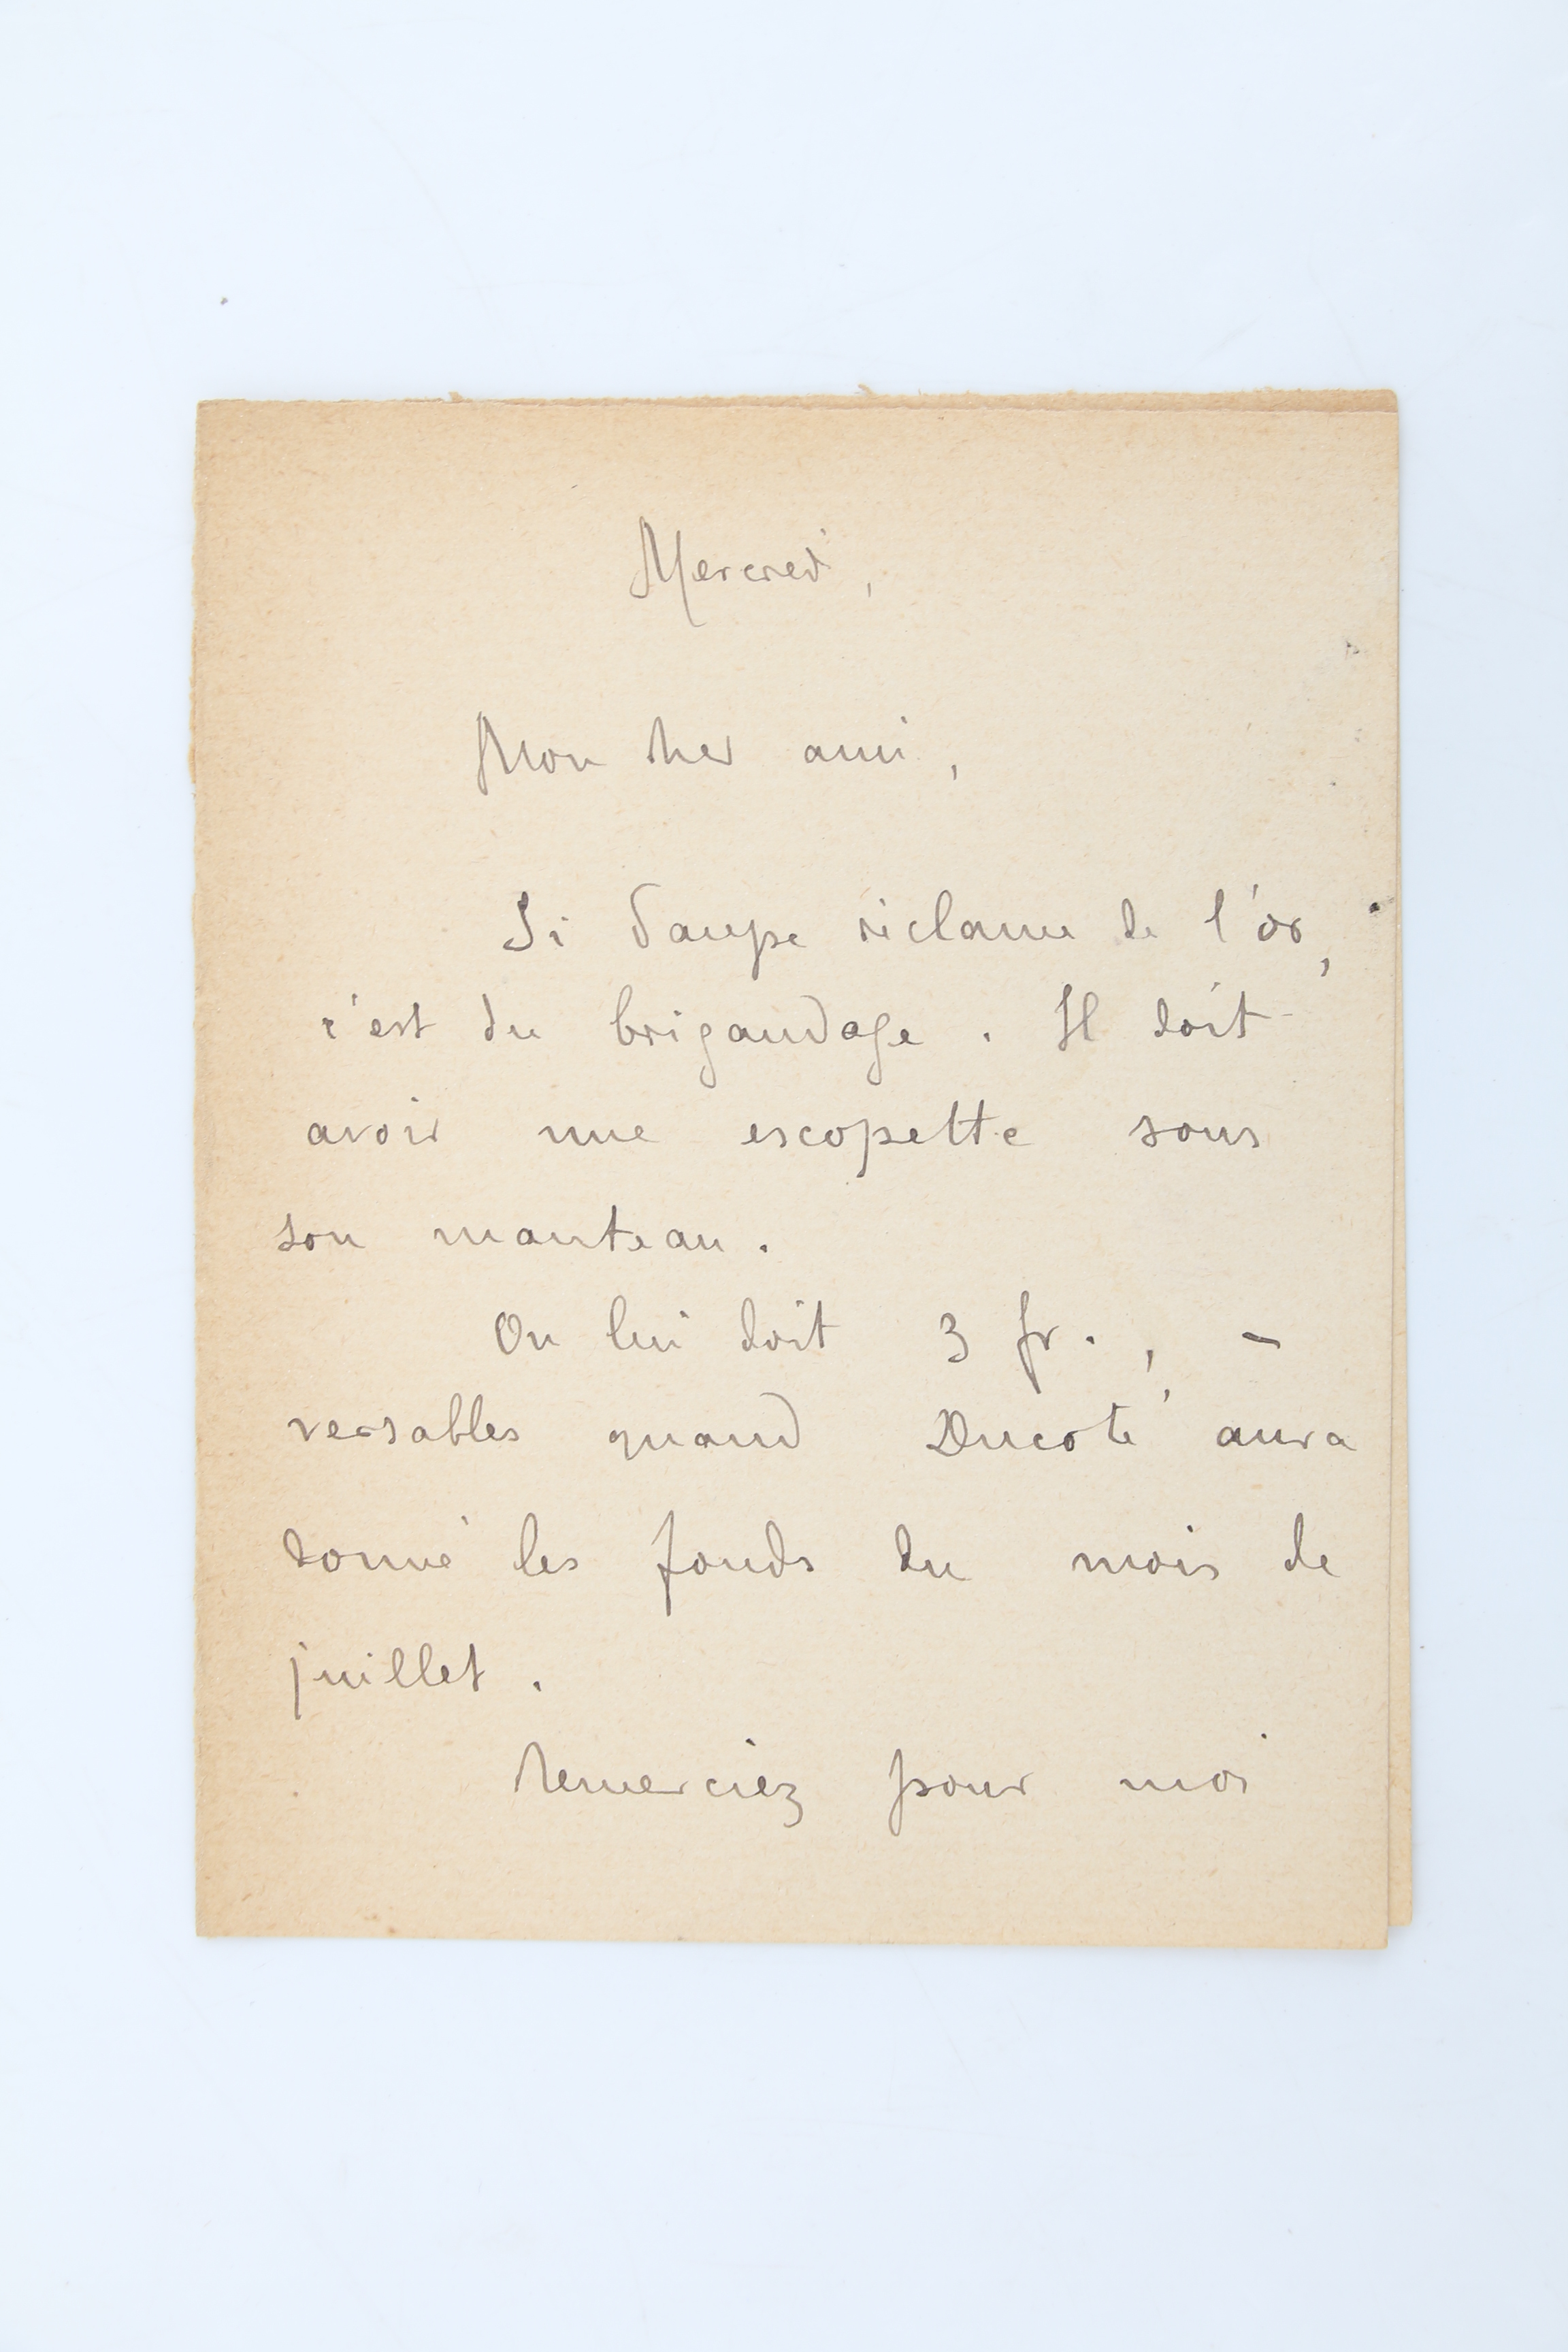 Mercredi,
Mon cher ami,
Si Daupe réclame de l'or,
c'est du brigandage. Il doit
avoir une escopette sous
son manteau.
On lui doit 3 fr., –
versables quand Ducoté aura
donné les fonds du mois de
juillet.
Remerciez pour moi